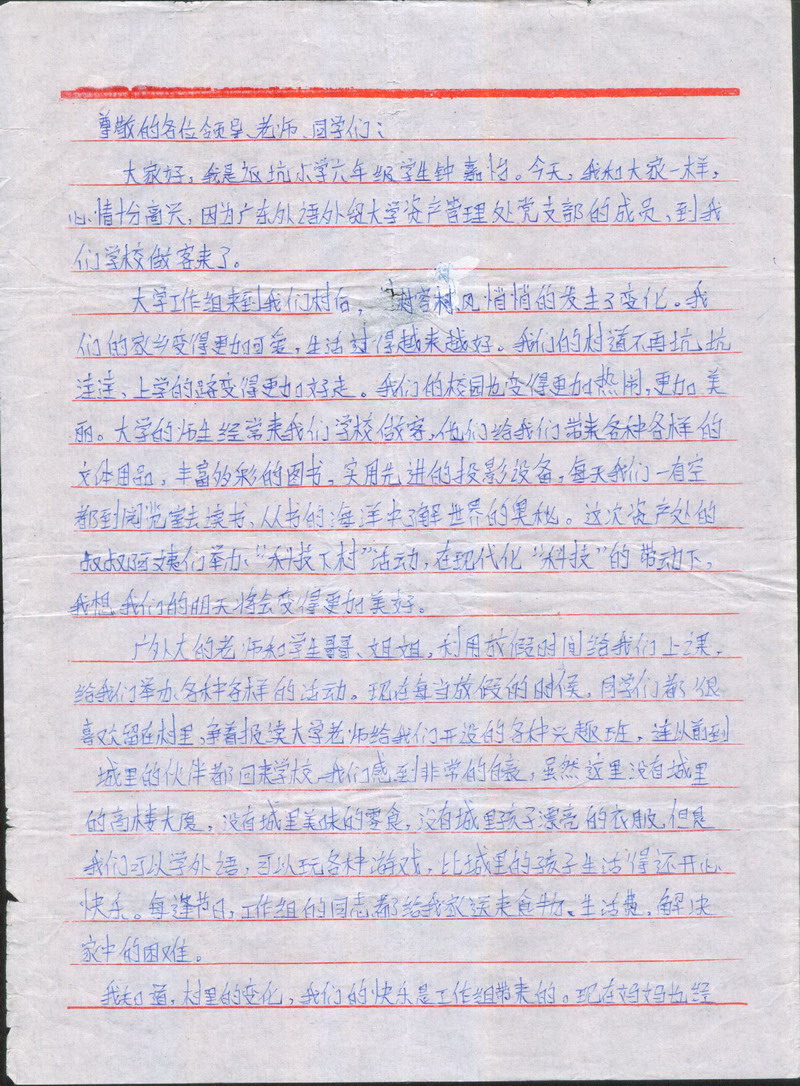 尊敬的各位领导、老师、同学们：
大家好，我是返坑小学六年级学生钟嘉怡。今天，我和大家一样，
心情十分高兴，因为广东外语外贸大学资产管理处党支部的成员，到我
们学校做客来了。
大学工作组来到我们村后，村容村风悄悄的发生了变化。我
们的家乡变得更加可爱，生活过得越来越好。我们的村道不再坑坑
洼洼、上学的路变得更加好走。我们的校园也变得更加热闹，更加美
丽。大学的师生经常来我们学校做客，他们给我们带来各种各样的
文体用品，丰富多彩的图书，实用先进的投影设备，每天我们一有空
都到阅览室去读书，从书的海洋中了解世界的奥秘。这次资产处的
叔叔阿姨们举办“科技下村”活动，在现代化“科技”的带动下，
我想我们的明天将会变得更加美好。
广外大的老师和学生哥哥、姐姐，利用放假时间给我们上课，
给我们举办各种各样的活动。现在每当放假的时候，同学们都很
喜欢留在村里，争着报读大学老师给我们开设的各种兴趣班，连从前到
城里的伙伴都回来学校，我们感到非常的自豪，虽然这里没有城里
的高楼大厦，没有城里美味的零食，没有城里孩子漂亮的衣服，但是
我们可以学外语，可以玩各种游戏，比城里的孩子生活得还开心
快乐。每逢节日，工作组的同志都给我家送来食物、生活费，解决
家中的困难。
我知道，村里的变化，我们的快乐是工作组带来的。现在妈妈也经